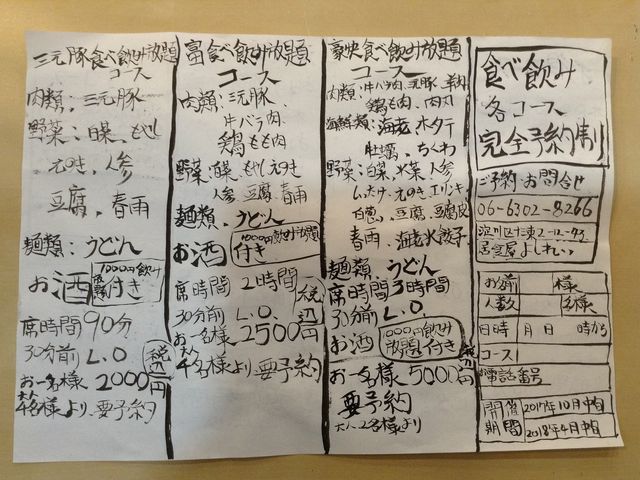 三元豚食べ飲み放題
コース
肉類:三元豚
野菜:白菜、もやし
えのき、人参
豆腐、春雨
麺類:うどん
お酒 1000円飲み放題付き
席時間90分
30分前 L.O
お一名様 2000円 税込
大人4名様より要予約
富食べ飲み放題
コース
肉類:三元豚、
牛バラ肉
鶏もも肉
野菜:白菜、もやしえのき
人参 豆腐 春雨
麺類、うどん
お酒 1000円飲み放題付き
席時間 2時間
30分前 L.O.
お一名様 2500円 税込
大人4名様より要予約
豪快食べ飲み放題
コース
肉類:牛バラ肉、三元豚 羊肉
鶏もも肉、肉丸
海鮮類:海老 ホタテ
牡蠣、ちくわ
野菜:白菜、水菜 人参
しいたけ・えのき エリンギ
白葱、豆腐、豆腐皮
春雨、海老水餃子
麺類 うどん
席時間 3時間
30分前 L.O.
お酒 1000円飲み放題付き
お一名様 5000円 税込
要予約
大人2名様より
食べ飲み
各コース
完全予約制
ご予約・お問合せ
06-6302-8266
淀川区十三東2-12-43
居食屋よしれい
お名前 様
人数 名様
日時 月 日 時から
コース
お電話番号
開催期間 2017年10月中旬
2018年4月中旬